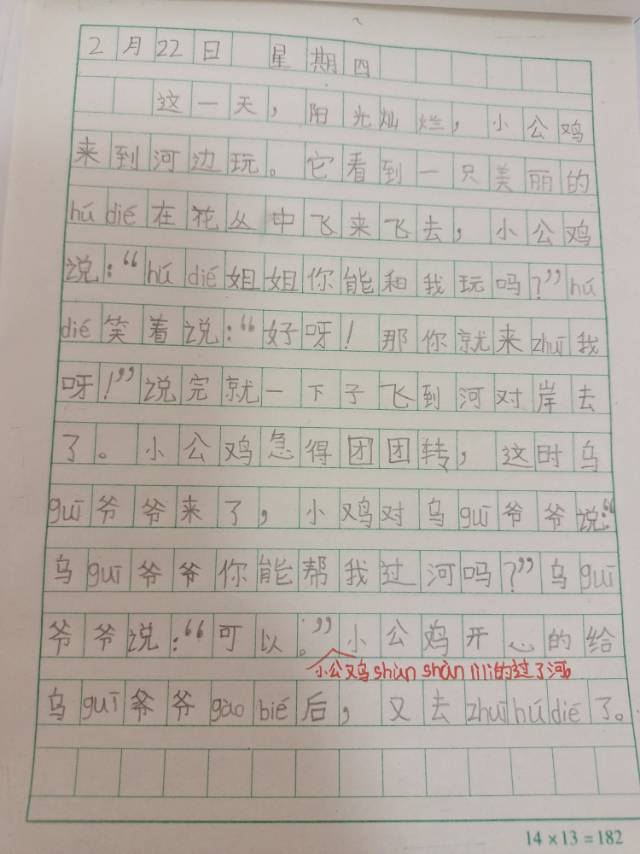 2月22日 星期四
这一天，阳光灿烂，小公鸡
来到河边玩。它看到一只美丽的
hú dié在花丛中飞来飞去，小公鸡
说：“hú dié姐姐你能和我玩吗？”hú
dié笑着说：“好呀！那你就来zhuī我
呀！”说完就一下子飞到河对岸去
了。小公鸡急得团团转，这时乌
guī爷爷来了，小鸡对乌guī爷爷说：“
乌guī爷爷你能帮我过河吗？”乌guī
爷爷说：“可以。”小公鸡开心的给
小公鸡shùn shùn lìlì的过了河。
乌guī爷爷gào bié后，又去zhuī hú dié了。
14×13=182